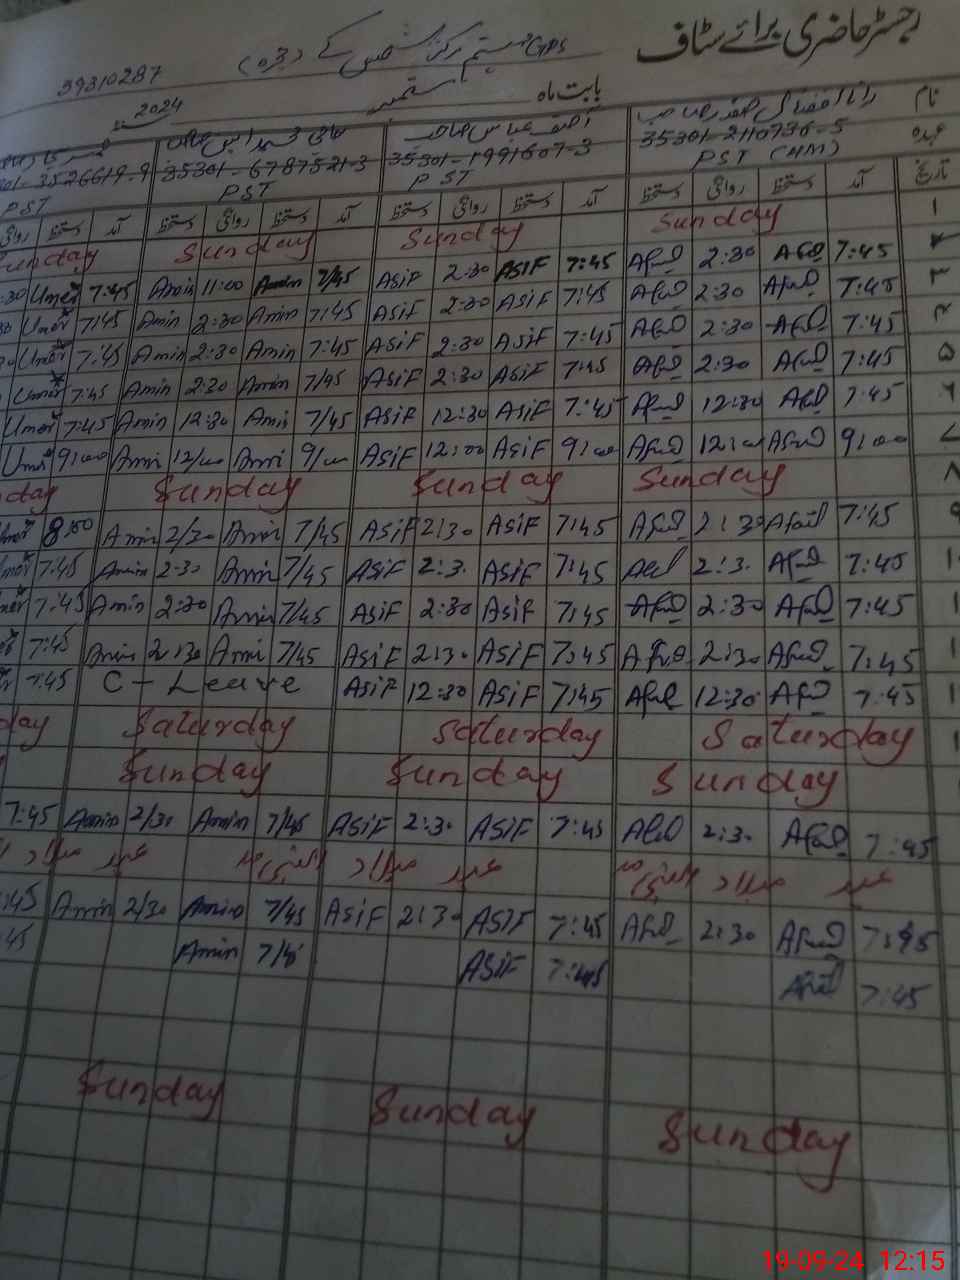 رجسٹر حاضری برائے سٹاف
GPS
39310287
بابت ماہ ستمبر 2024
نام
عہدہ 35301-2110736-5 35301-1991607-3 35301-6787521-3 3526619-9
PST (HM) PST PST PST
تاریخ آمد دستخط روانگی دستخط آمد دستخط روانگی دستخط آمد دستخط روانگی دستخط آمد دستخط روانگی
۱ Sunday Sunday Sunday Sunday
۲ 7:45 Afzal 2:30 Afzal 7:45 ASiF 2:30 ASiF 7/45 Amin 11:00 Amin 7:45 Umer :30
۳ 7:45 Afzal 2:30 Afzal 7:45 ASiF 2:30 ASiF 7:45 Amin 2:30 Amin 7:45 Umer
۴ 7:45 Afzal 2:30 Afzal 7:45 ASiF 2:30 ASiF 7:45 Amin 2:30 Amin 7:45 Umer
۵ 7:45 Afzal 2:30 Afzal 7:45 ASiF 2:30 ASiF 7/45 Amin 2:30 Amin 7:45 Umer
۶ 7:45 Afzal 12:30 Afzal 7:45 ASiF 12:30 ASiF 7/45 Amin 12:30 Amin 7:45 Umer
۷ 9:00 Afzal 12:00 Afzal 9:00 ASiF 12:00 ASiF 9/00 Amin 12/00 Amin 9:00 Umer
۸ Sunday Sunday Sunday day
۹ 7:45 Afzal 2:30 Afzal 7:45 ASiF 2:30 ASiF 7/45 Amin 2/30 Amin 8:00
7:45 Afzal 2:3. Afzal 7:45 ASiF 2:3. ASiF 7/45 Amin 2:30 Amin 7:45
7:45 Afzal 2:30 Afzal 7:45 ASiF 2:30 ASiF 7/45 Amin 2:30 Amin 7:45
7:45 Afzal 2:30 Afzal 7:45 ASiF 2:3. ASiF 7/45 Amin 2:30 Amin 7:45
7:45 Afzal 12:30 Afzal 7:45 ASiF 12:30 ASiF C-Leave 7:45
Saturday Saturday Saturday day
Sunday Sunday Sunday
7:45 Afzal 2:3. Afzal 7:45 ASiF 2:3. ASiF 7/45 Amin 2/30 Amin 7:45
عید میلاد النبی عید میلاد النبی عید میلاد
7:45 Afzal 2:30 Afzal 7:45 ASiF 2:30 ASiF 7/45 Amin 2/30 Amin :45
7:45 Afzal 7:45 ASiF 7/45 Amin 45
Sunday Sunday Sunday
19-09-24 12:15